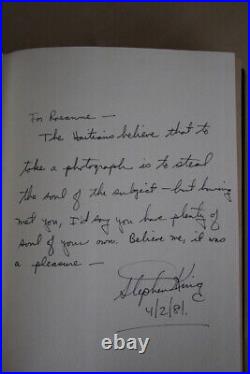 For Roseanne —
The Haitians believe that to
take a photograph is to steal
the soul of the subject — but having
met you, I'd say you have plenty of
soul of your own. Believe me, it was
a pleasure —
Stephen King
4/2/81.